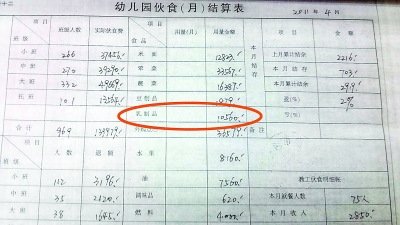 幼儿园伙食(月)结算表
2011年4月
班级 班级人数 实际伙食费 项目 食品 用量(月) 用量金额 本月结存 项目 金额
小班 266 37456. 米面 12823. 上月累计结余 2216.
中班 270 39290. 荤菜 33567. 本月结余 703.
大班 332 蔬菜 16387. 本月累计结余
托班 101 豆制品 盈(%) 2%
乳制品 10560. 亏(%)
合计 969 备注
班级 人数 退园 水果 8160.
小班 112 3196. 油 7560. 教工伙食明细帐
中班 35 2120. 调味品 620. 本月就餐人数 75人
大班 38 1645. 燃料 4000. 本月收入 2850.